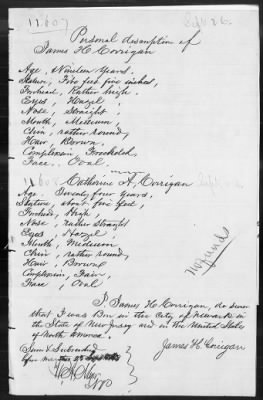 11607
Personal description of
James H. Corrigan
Age, Nineteen Years.
Stature, Five feet five inches,
Forehead, Rather high.
Eyes, Hazel
Nose, Straight
Mouth, Medium,
Chin, rather round,
Hair, Brown.
Complexion, Freckeled.
Face.. Oval.
11608
Catherine A. Corrigan
Age. Twenty four years,
Stature, about five feet,
Forehead, High,
Nose, rather Straight
Eyes, Hazel
Mouth, Medium
Chin, rather round,
Hair, Brown,
Complexion, Fair,
Face, Oval
No funds
I, James H. Corrigan, do swear
that I was Born in the City of Newark in
the State of New Jersey and in the United States
of North America.
James H Corrigan
Sworn & Subscribed
before me this